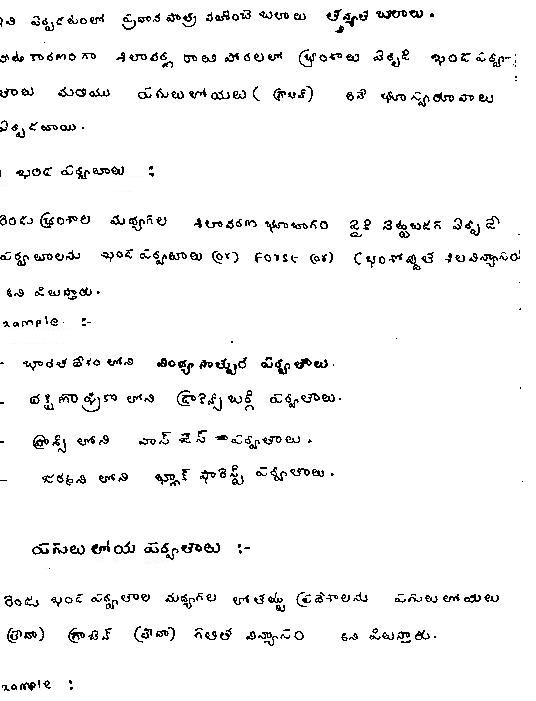 ఏర్పడటంలో ప్రధాన పాత్ర వహించే బలాలు
కారణంగా శిలావరణ రాటు పోరలలో భ్రంశాలు ఏర్పడి ఖండ పర్వ
తాలు మరియు పగులులోయలు ( గ్రాబెన్ ) అనే భూస్వరూపాలు
ఏర్పడతాయి.
ఖండ పర్వతాలు :
రెండు భ్రంశాల మధ్యగల శిలావరణ భూభాగం పైకి నెట్టుబడగ ఏర్పడే
పర్వతాలను ఖండ పర్వతాలు (or) Forst (or) (భ్రంశోత్థిత శిలావిన్యాసం
అని పిలుస్తారు.
xample :-
- భారత దేశం లోని వింధ్య సాత్పుర పర్వతాలు.
- దక్షిణాఫ్రికా లోని డ్రాకెన్స్ బర్గ్ పర్వతాలు.
- ఫ్రాన్స్ లోని వాస్ జెస్ పర్వతాలు.
- జర్మని లోని బ్లాక్ ఫారెస్ట్ పర్వతాలు.
పగులు లోయ పర్వతాలు :-
రెండు ఖండ పర్వతాల మధ్యగల లోతట్టు ప్రదేశాలను పగులులోయలు
(లేదా) గ్రాబెన్ (లేదా) గతిత విన్యాసం అని పిలుస్తారు.
xample :